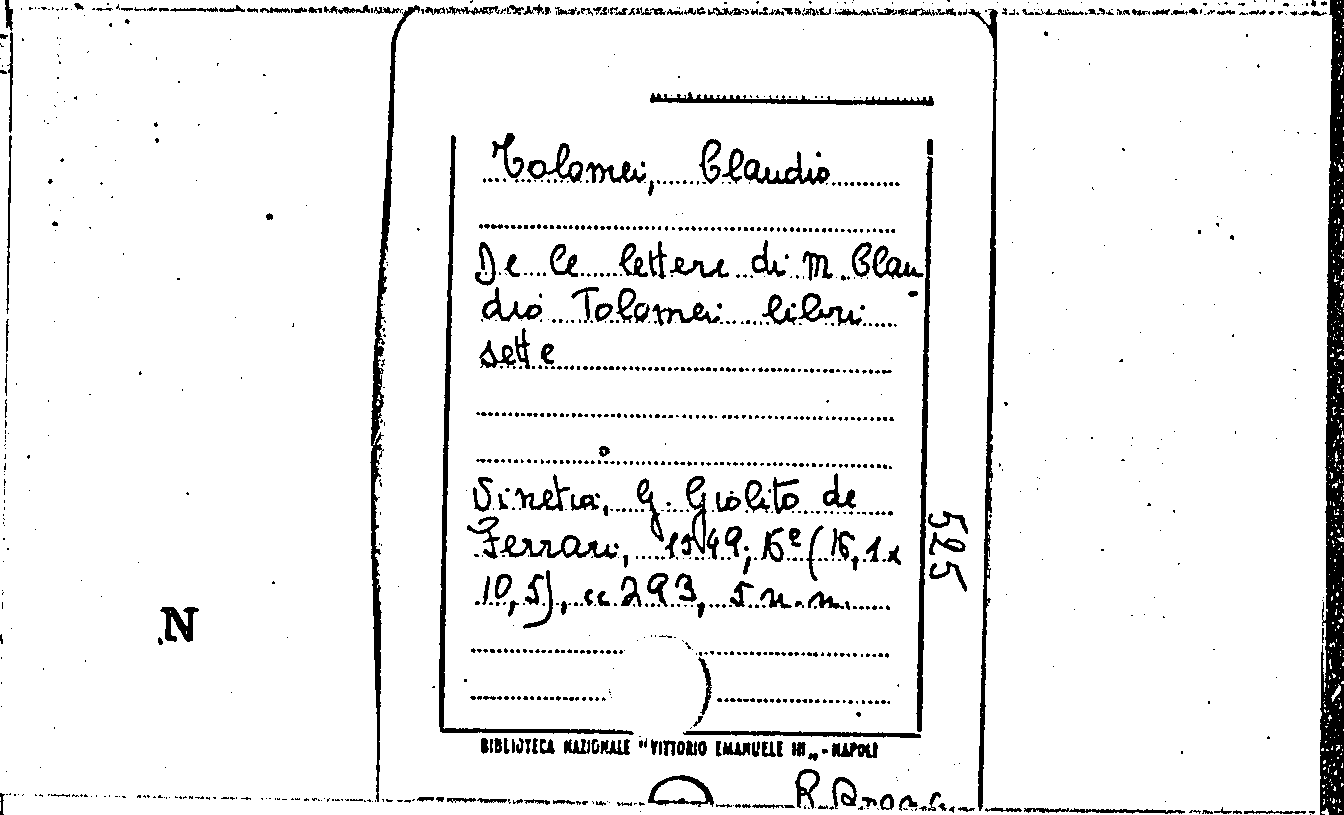 Tolomei, Claudio
De le lettere di M. Clau-
dio Tolomei libri
sette
Vinetia, G. Giolito de
Ferrari, 1549; 16º (16,1x
10,5), cc 293, 5 n.n.
525
N
BIBLIOTECA NAZIONALE "VITTORIO EMANUELE III„ - NAPOLI